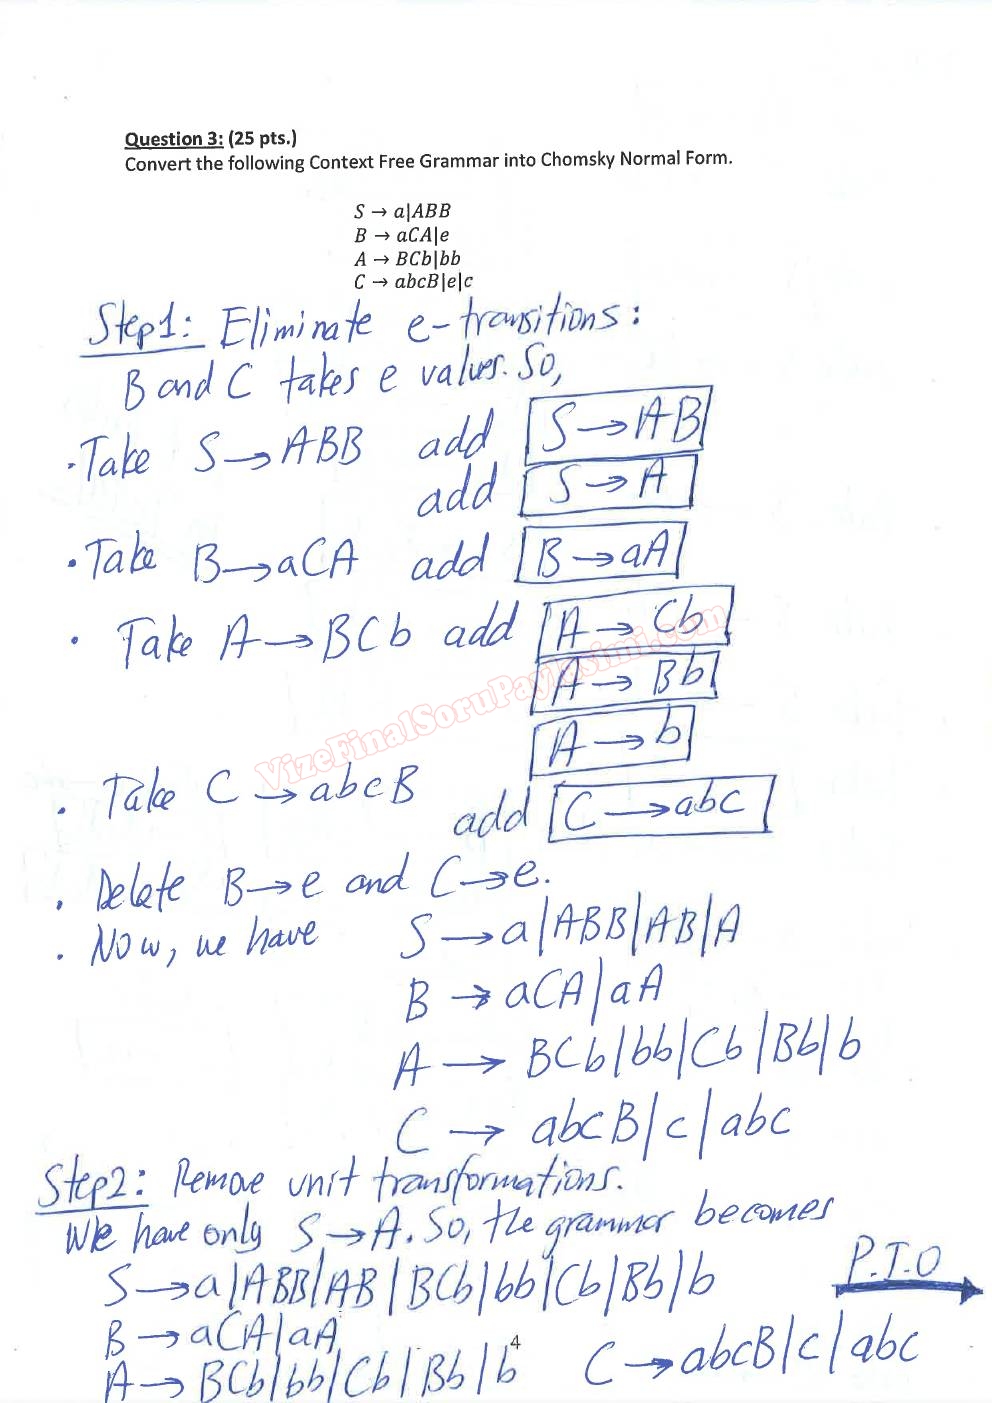 Question 3: (25 pts.)
Convert the following Context Free Grammar into Chomsky Normal Form.
S → a|ABB
B → aCA|e
A → BCb|bb
C → abcB|e|c
Step1: Eliminate e-transitions:
B and C takes e values. So,
· Take S → ABB add S → AB
add S → A
· Take B → aCA add B → aA
· Take A → BCb add A → Cb
A → Bb
A → b
VizeFinalSoruPaylasimi.com
· Take C → abcB
add C → abc
· Delete B → e and C → e.
· Now, we have S → a|ABB|AB|A
B → aCA|aA
A → BCb|bb|Cb|Bb|b
C → abcB|c|abc
Step2: Remove unit transformations.
We have only S → A. So, the grammar becomes
S → a|ABB|AB|BCb|bb|Cb|Bb|b
P.T.O
B → aCA|aA
A → BCb|bb|Cb|Bb|b
4
C → abcB|c|abc